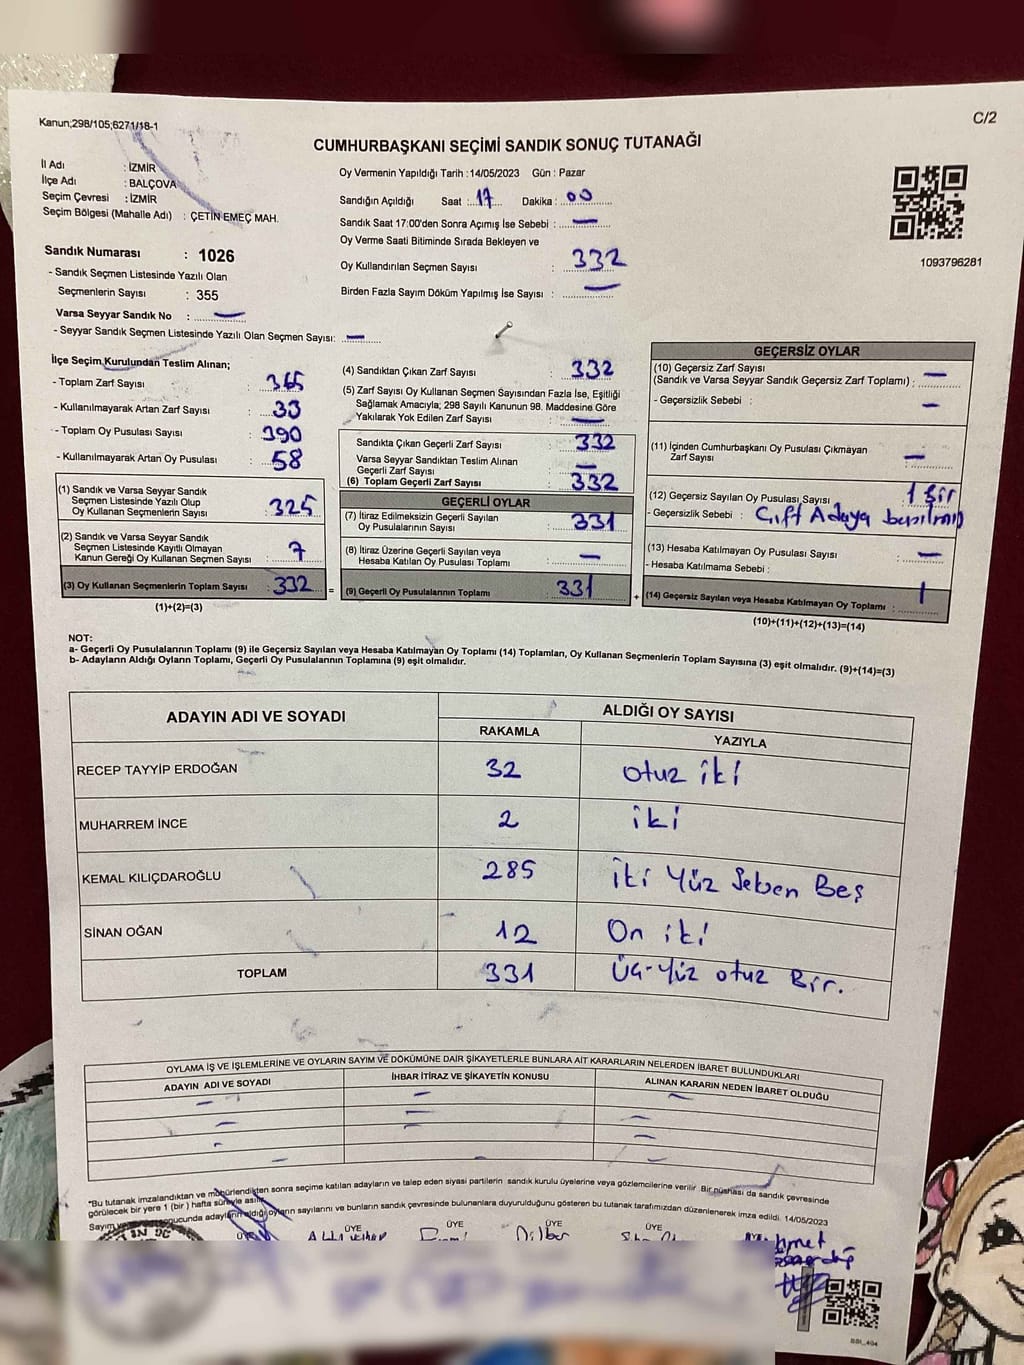 Kanun;298/105;6271/18-1
C/2
CUMHURBAŞKANI SEÇİMİ SANDIK SONUÇ TUTANAĞI
İl Adı : İZMİR
İlçe Adı : BALÇOVA
Seçim Çevresi : İZMİR
Seçim Bölgesi (Mahalle Adı) : ÇETİN EMEÇ MAH.
Oy Vermenin Yapıldığı Tarih :14/05/2023 Gün : Pazar
Sandığın Açıldığı Saat : 17 Dakika : 00
Sandık Saat 17:00'den Sonra Açımış İse Sebebi : —
Oy Verme Saati Bitiminde Sırada Bekleyen ve
Oy Kullandırılan Seçmen Sayısı : 332
Birden Fazla Sayım Döküm Yapılmış İse Sayısı : —
1093796281
Sandık Numarası : 1026
- Sandık Seçmen Listesinde Yazılı Olan
Seçmenlerin Sayısı : 355
Varsa Seyyar Sandık No : —
- Seyyar Sandık Seçmen Listesinde Yazılı Olan Seçmen Sayısı: —
İlçe Seçim Kurulundan Teslim Alınan;
- Toplam Zarf Sayısı : 365
- Kullanılmayarak Artan Zarf Sayısı : 33
- Toplam Oy Pusulası Sayısı : 390
- Kullanılmayarak Artan Oy Pusulası : 58
(1) Sandık ve Varsa Seyyar Sandık
Seçmen Listesinde Yazılı Olup
Oy Kullanan Seçmenlerin Sayısı : 325
(2) Sandık ve Varsa Seyyar Sandık
Seçmen Listesinde Kayıtlı Olmayan
Kanun Gereği Oy Kullanan Seçmen Sayısı : 7
(3) Oy Kullanan Seçmenlerin Toplam Sayısı : 332
(1)+(2)=(3)
(4) Sandıktan Çıkan Zarf Sayısı : 332
(5) Zarf Sayısı Oy Kullanan Seçmen Sayısından Fazla İse, Eşitliği
Sağlamak Amacıyla; 298 Sayılı Kanunun 98. Maddesine Göre
Yakılarak Yok Edilen Zarf Sayısı : —
Sandıkta Çıkan Geçerli Zarf Sayısı : 332
Varsa Seyyar Sandıktan Teslim Alınan
Geçerli Zarf Sayısı : —
(6) Toplam Geçerli Zarf Sayısı : 332
GEÇERLİ OYLAR
(7) İtiraz Edilmeksizin Geçerli Sayılan
Oy Pusulalarının Sayısı : 331
(8) İtiraz Üzerine Geçerli Sayılan veya
Hesaba Katılan Oy Pusulası Toplamı : —
= (9) Geçerli Oy Pusulalarının Toplamı : 331 +
GEÇERSİZ OYLAR
(10) Geçersiz Zarf Sayısı
(Sandık ve Varsa Seyyar Sandık Geçersiz Zarf Toplamı) : —
- Geçersizlik Sebebi : —
(11) İçinden Cumhurbaşkanı Oy Pusulası Çıkmayan
Zarf Sayısı : —
(12) Geçersiz Sayılan Oy Pusulası Sayısı : 1 Bir
- Geçersizlik Sebebi : Çift Adaya basılmış
(13) Hesaba Katılmayan Oy Pusulası Sayısı : —
- Hesaba Katılmama Sebebi :
(14) Geçersiz Sayılan veya Hesaba Katılmayan Oy Toplamı : 1
(10)+(11)+(12)+(13)=(14)
NOT:
a- Geçerli Oy Pusulalarının Toplamı (9) ile Geçersiz Sayılan veya Hesaba Katılmayan Oy Toplamı (14) Toplamları, Oy Kullanan Seçmenlerin Toplam Sayısına (3) eşit olmalıdır. (9)+(14)=(3)
b- Adayların Aldığı Oyların Toplamı, Geçerli Oy Pusulalarının Toplamına (9) eşit olmalıdır.
ADAYIN ADI VE SOYADI ALDIĞI OY SAYISI
RAKAMLA YAZIYLA
RECEP TAYYİP ERDOĞAN 32 otuz iki
MUHARREM İNCE 2 iki
KEMAL KILIÇDAROĞLU 285 iki Yüz Seksen Beş
SİNAN OĞAN 12 On iki
TOPLAM 331 Üç-Yüz otuz Bir.
OYLAMA İŞ VE İŞLEMLERİNE VE OYLARIN SAYIM VE DÖKÜMÜNE DAİR ŞİKAYETLERLE BUNLARA AİT KARARLARIN NELERDEN İBARET BULUNDUKLARI
ADAYIN ADI VE SOYADI İHBAR İTİRAZ VE ŞİKAYETİN KONUSU ALINAN KARARIN NEDEN İBARET OLDUĞU
*Bu tutanak imzalandıktan ve mühürlendikten sonra seçime katılan adayların ve talep eden siyasi partilerin sandık kurulu üyelerine veya gözlemcilerine verilir. Bir nüshası da sandık çevresinde
görülecek bir yere 1 (bir ) hafta süreyle asılır.
Sayım sonucunda adayların aldığı oyların sayılarını ve bunların sandık çevresinde bulunanlara duyurulduğunu gösteren bu tutanak tarafımızdan düzenlenerek imza edildi. 14/05/2023
ÜYE ÜYE ÜYE ÜYE
Dilber